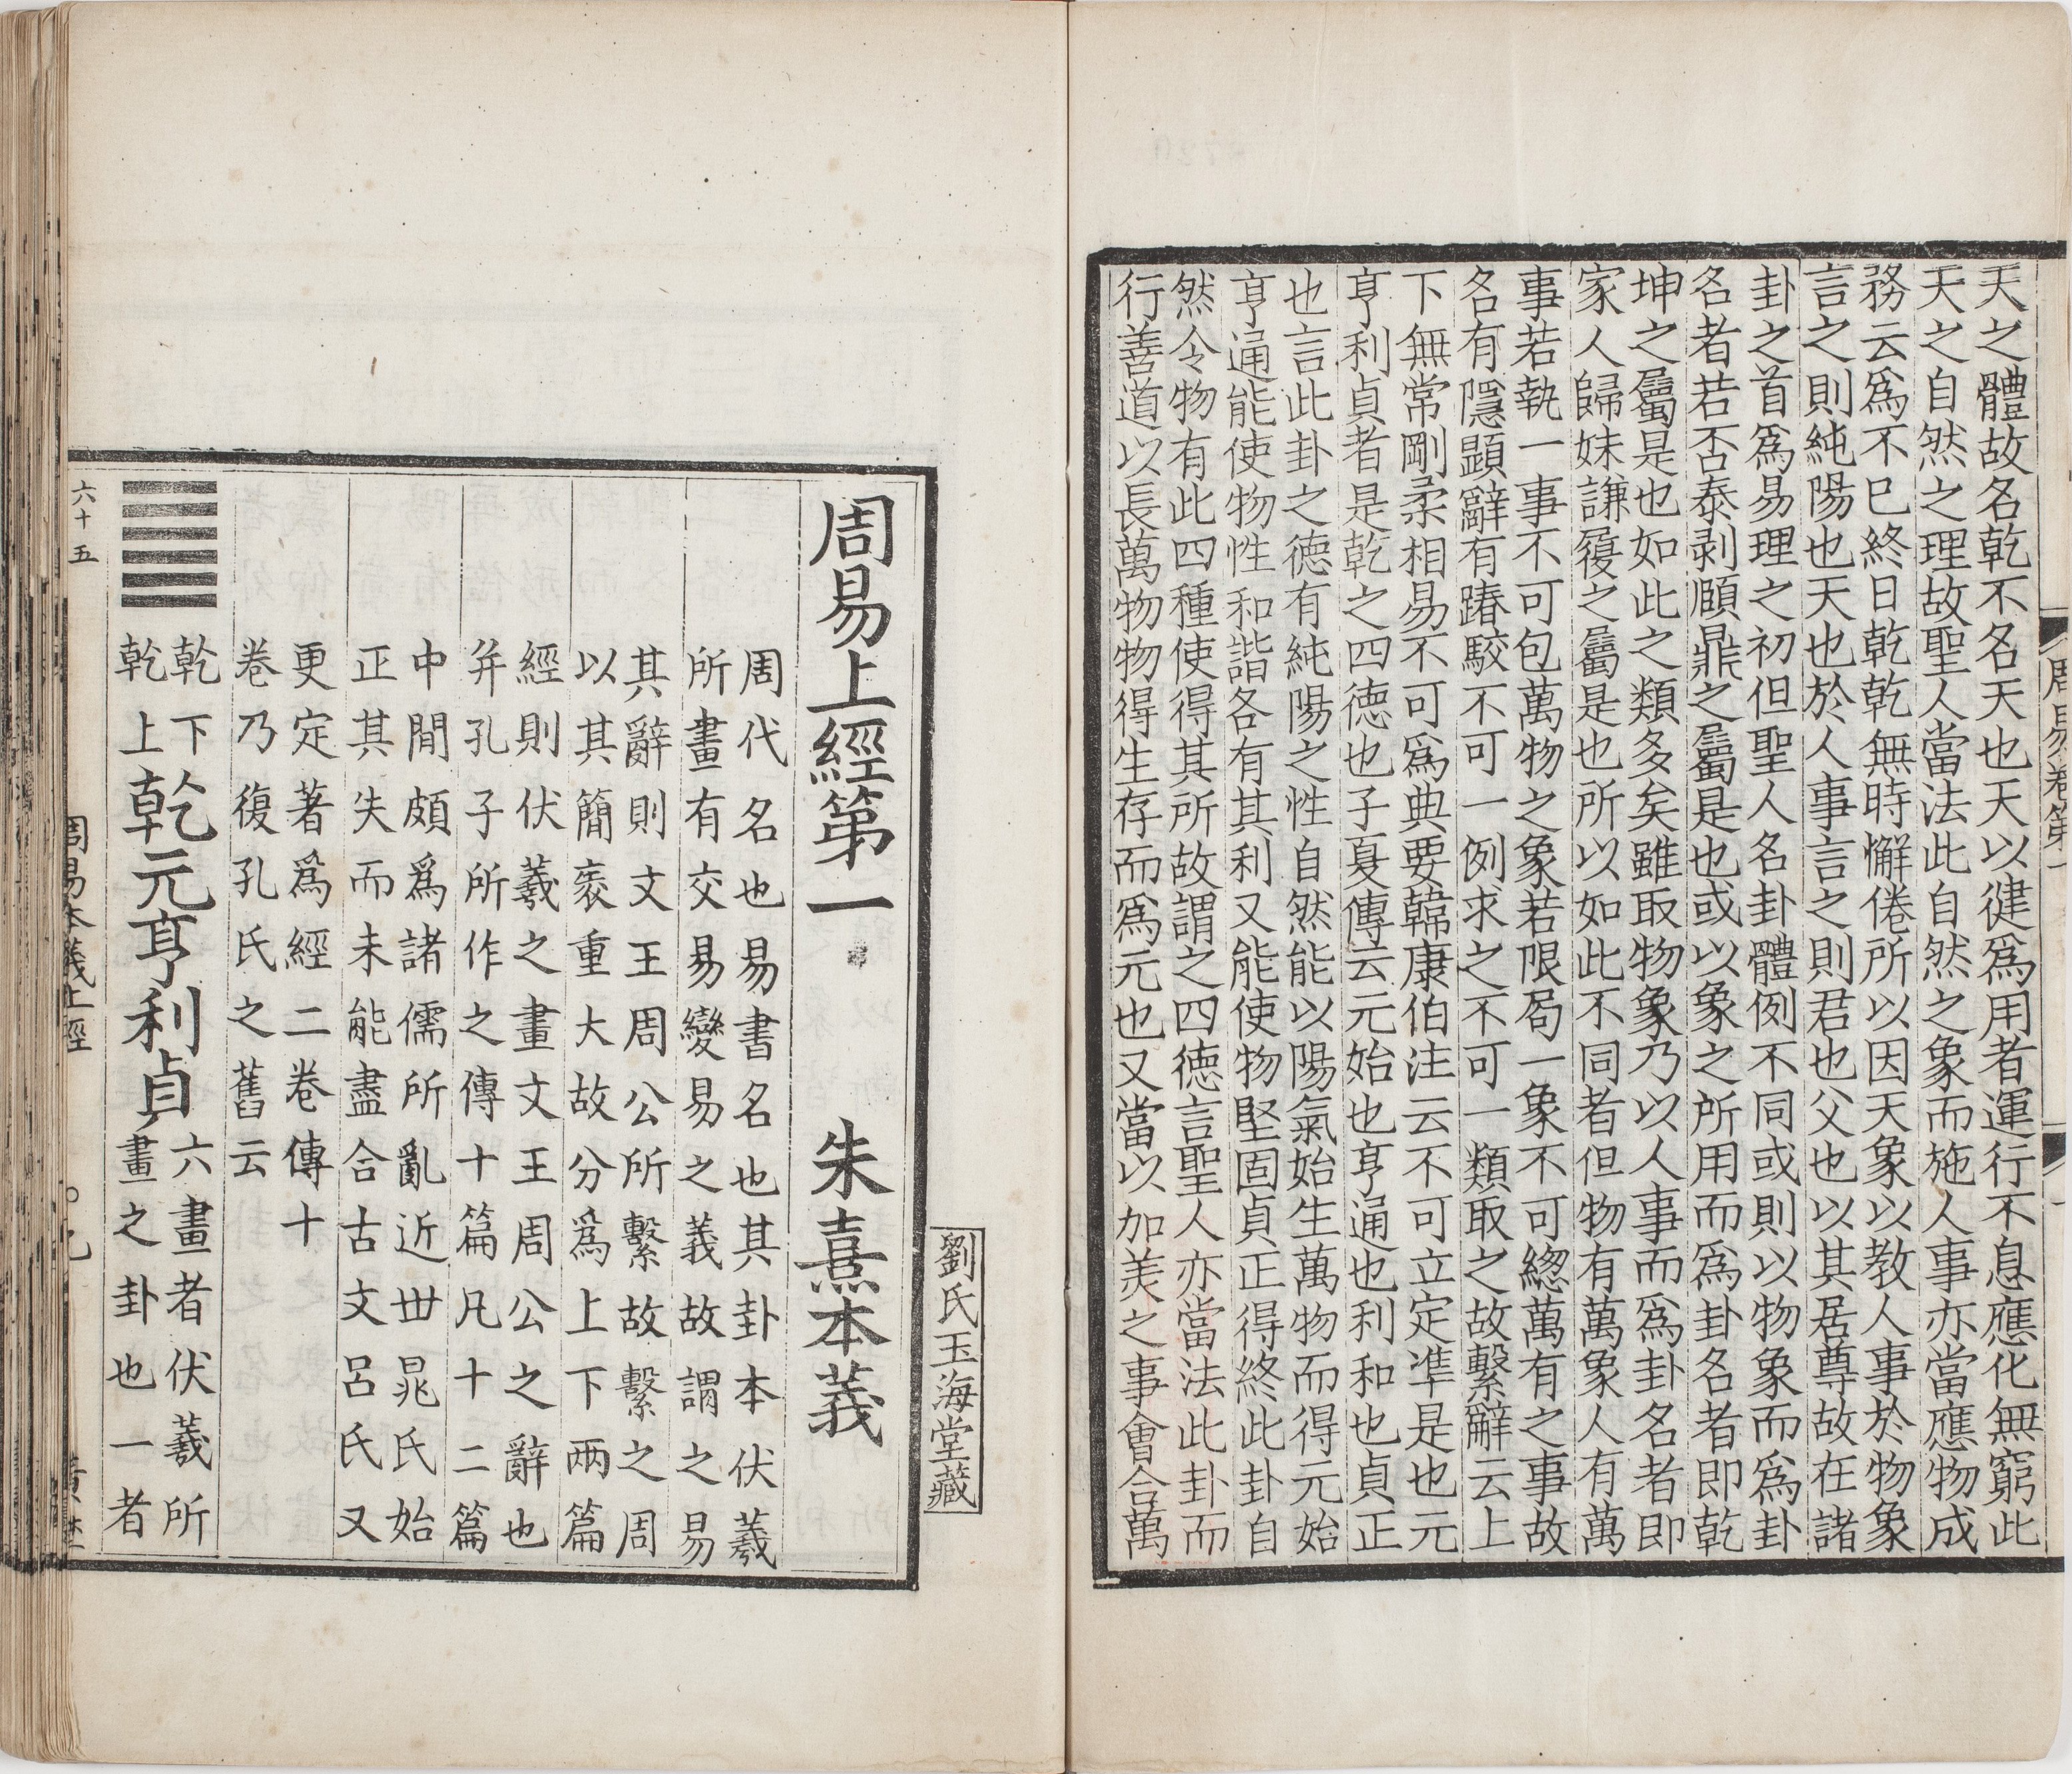 天之體故名乾不名天也天以健爲用者運行不息應化無窮此
天之自然之理故聖人當法此自然之象而施人事亦當應物成
務云爲不已終日乾乾無時懈倦所以因天象以教人事於物象
言之則純陽也天也於人事言之則君也父也以其居尊故在諸
卦之首爲易理之初但聖人名卦體例不同或則以物象而爲卦
名者若否泰剥頤鼎之屬是也或以象之所用而爲卦名者即乾
坤之屬是也如此之類多矣雖取物象乃以人事而爲卦名者即
家人歸妹謙履之屬是也所以如此不同者但物有萬象人有萬
事若執一事不可包萬物之象若限局一象不可緫萬有之事故
名有隱顕辭有踳駮不可一例求之不可一類取之故繫辭云上
下無常剛柔相易不可爲典要韓康伯注云不可立定準是也元
亨利貞者是乾之四德也子夏傳云元始也亨通也利和也貞正
也言此卦之德有純陽之性自然能以陽氣始生萬物而得元始
亨通能使物性和諧各有其利又能使物堅固貞正得終此卦自
然令物有此四種使得其所故謂之四德言聖人亦當法此卦而
行善道以長萬物物得生存而爲元也又當以加美之事會合萬
周易卷第一
一
劉氏玉海堂藏
周易上經第一　朱熹本義
周代名也易書名也其卦本伏羲
所畫有交易變易之義故謂之易
其辭則文王周公所繫故繫之周
以其簡袠重大故分爲上下兩篇
經則伏羲之畫文王周公之辭也
并孔子所作之傳十篇凡十二篇
中間頗爲諸儒所亂近世晁氏始
正其失而未能盡合古文呂氏又
更定著爲經二卷傳十
卷乃復孔氏之舊云
乾下
乾上
乾元亨利貞
六畫者伏羲所
畫之卦也一者
六十五
周易本義上經